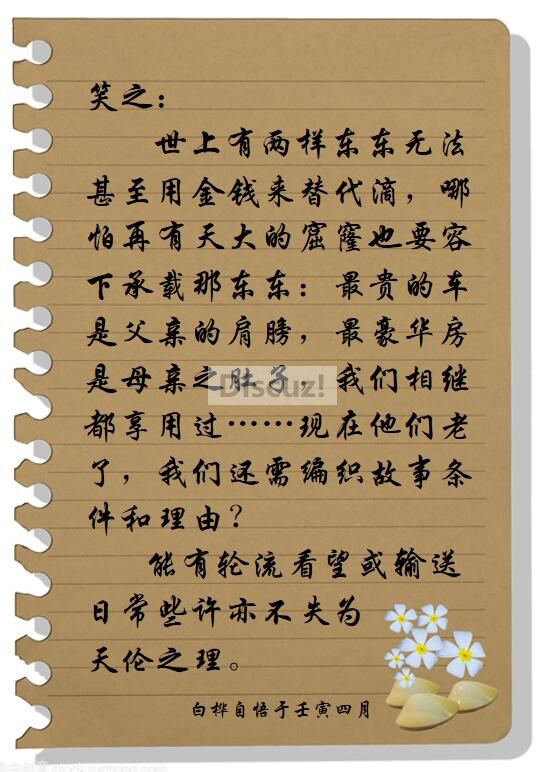 笑之：
世上有两样东东无法
甚至用金钱来替代滴，哪
怕再有天大的窟窿也要容
下承载那东东：最贵的车
是父亲的肩膀，最豪华房
是母亲之肚子，我们相继
都享用过……现在他们老
了，我们还需编织故事条
件和理由？
能有轮流看望或输送
日常些许亦不失为
天伦之理。
白桦自悟于壬寅四月
Discuz!